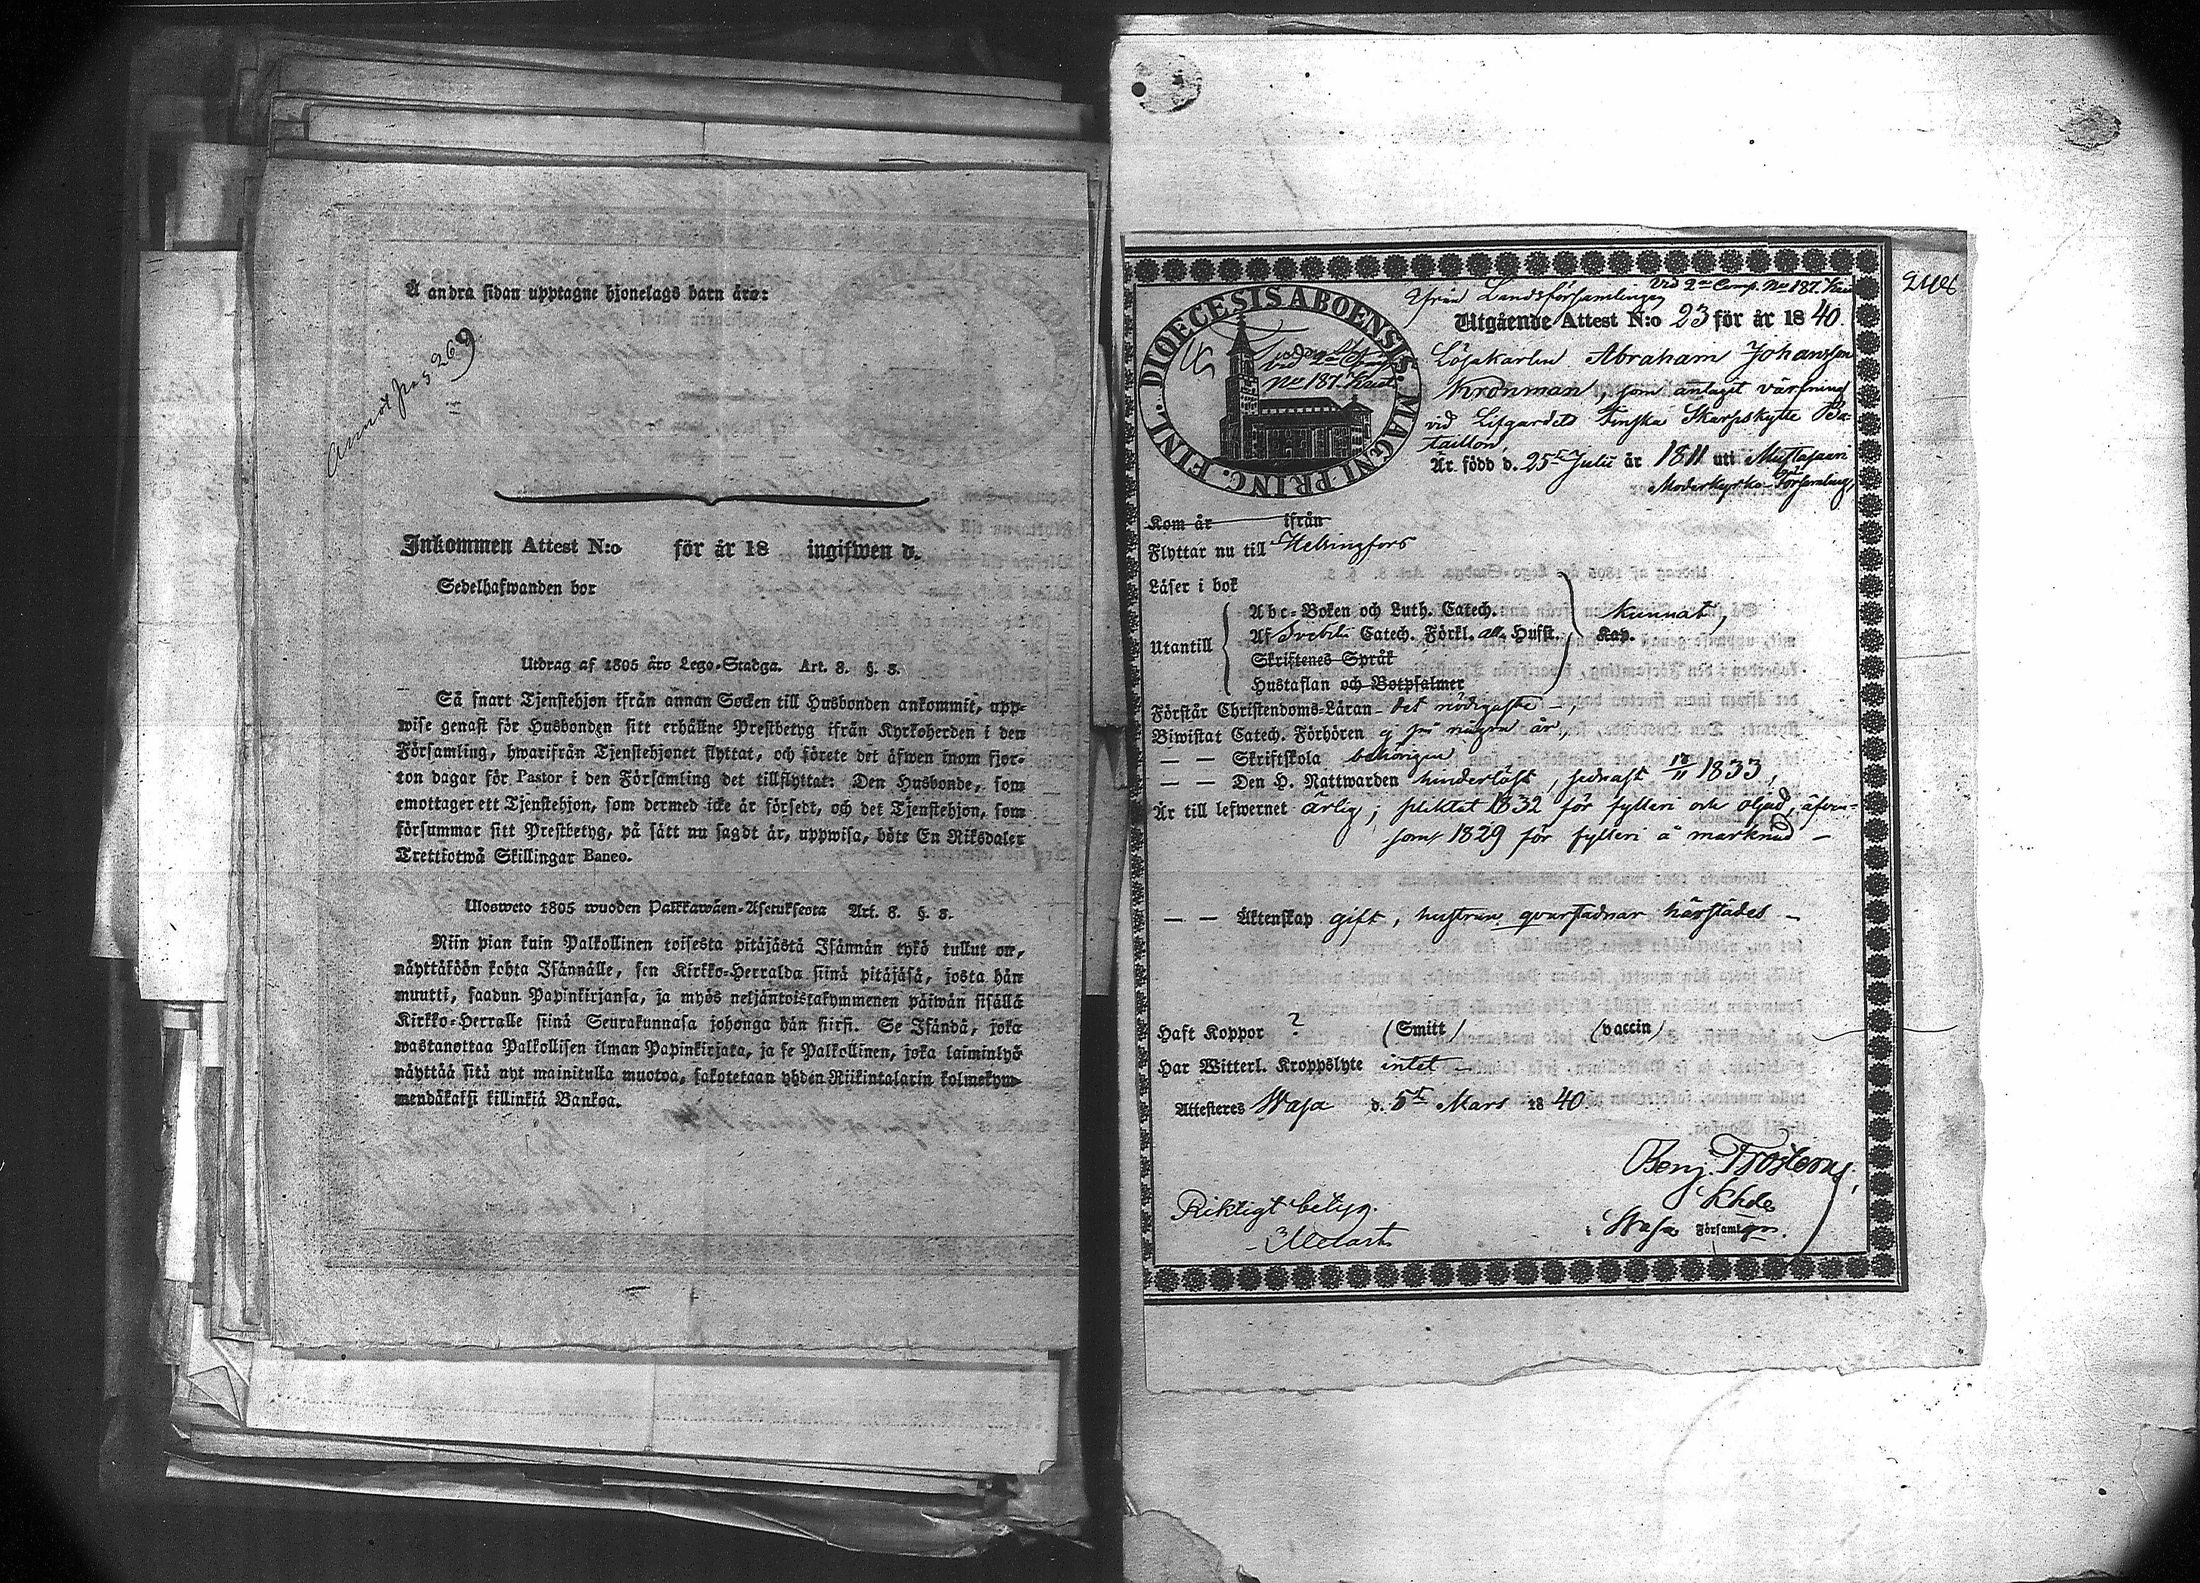 Å andra sidan upptagne hjonelags barn äro:
Inkommen Attest N:o för år 18 ingifwen d.
Sedelhafwanden bor
Utdrag af 1805 års Lego-Stadga. Art. 8. §. 8.
Så snart Tjenstehjon ifrån annan Socken till Husbonden ankommit, upp-
wise genast för Husbonden sitt erhållne Prestbetyg ifrån Kyrkoherden i den
Församling, hwarifrån Tjenstehjonet flyttat, och förete det äfwen inom fjor-
ton dagar för Pastor i den Församling det tillflyttat: Den Husbonde, som
emottager ett Tjenstehjon, som dermed icke är försedt, och det Tjenstehjon, som
försummar sitt Prestbetyg, på sätt nu sagdt är, uppwisa, böte En Riksdaler
Trettiotwå Skillingar Banco.
Ulosweto 1805 wuoden Palkkawäen-Asetuksesta Art. 8. §. 8.
Niin pian kuin Palkollinen toisesta pitäjästä Isännän tykö tullut on,
näyttäköön kohta Isännälle, sen Kirkko-Herralda siinä pitäjäsä, josta hän
muutti, saadun Papinkirjansa, ja myös neljäntoistakymmenen päiwän sisällä
Kirkko-Herralle siinä Seurakunnasa johonga hän siirsi. Se Isändä, joka
wastanottaa Palkollisen ilman Papinkirjata, ja se Palkollinen, joka laiminlyö
näyttää sitä nyt mainitulla muotoa, sakotetaan yhden Riikintalarin kolmekym-
mendäkaksi killinkiä Bankoa.
2446
Ifrån Landsförsamlingen
Vid 2ne Comp. No 187.
Utgående Attest N:o 23 för år 1840.
DIOECESIS ABOENSIS. MAGNI PRINC. FINL.
No 187.
Lösakarlen Abraham Johansson
Kronman, som antagit värfning
vid Lifgardets Finska Skarpskytte Ba-
taillon,
Är född d. 25te Julii år 1811 uti Mustasaari
Moderkyrko-Församling,
Kom år ifrån
Flyttar nu till Helsingfors
Läser i bok
Utantill
Abc-Boken och Luth. Catech.
Af Svebilii Catech. Förkl. alla Hufst. Kap.
Skriftenes Språk
Hustaflan och Botpsalmer
kunnat,
Förstår Christendoms-Läran det nödigaste -,
Biwistat Catech. Förhören ej på några år,
— — Skriftskola behörigen
— — Den H. Nattwarden hinderlöst, sednast 1833,
Är till lefwernet ärlig; pliktat 1832 för fylleri och oljud, äfven-
som 1829 för fylleri å marknad —
— — Äktenskap gift, hustrun qvarstadnar härstädes —
Haft Koppor ? (Smitt) (vaccin)
Har Witterl. Kroppslyte intet —
Attesteres Wasa d. 5te Mars 1840.
Benj. Frosterus,
Khde
i Wasa Församlgn.
Riktigt betyg.